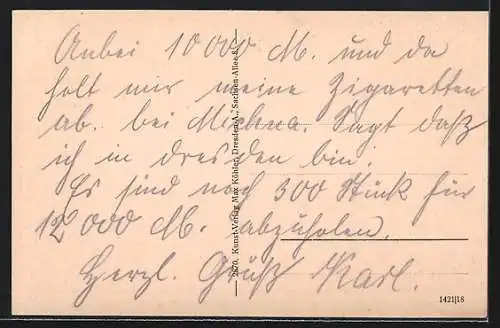 Anbei 10 000 M. und da
holt mir meine Zigaretten
ab. bei Michna. Sagt daß
ich in dresden bin.
Es sind noch 300 Stück für
12 000 M. abzuholen.
Herzl. Gruß Karl.
2670, Kunst-Verlag Max Köhler, Dresden-A., Sachsen-Allee 8.
1421|18